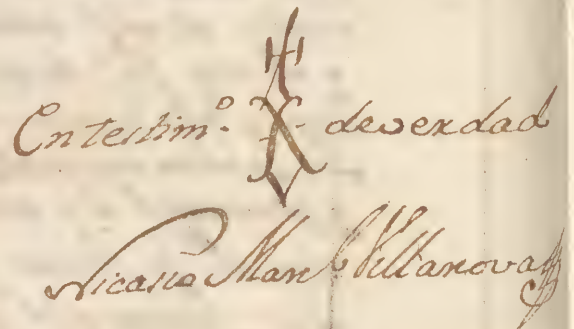 En testim.º de verdad
Nicasio Man Villanova